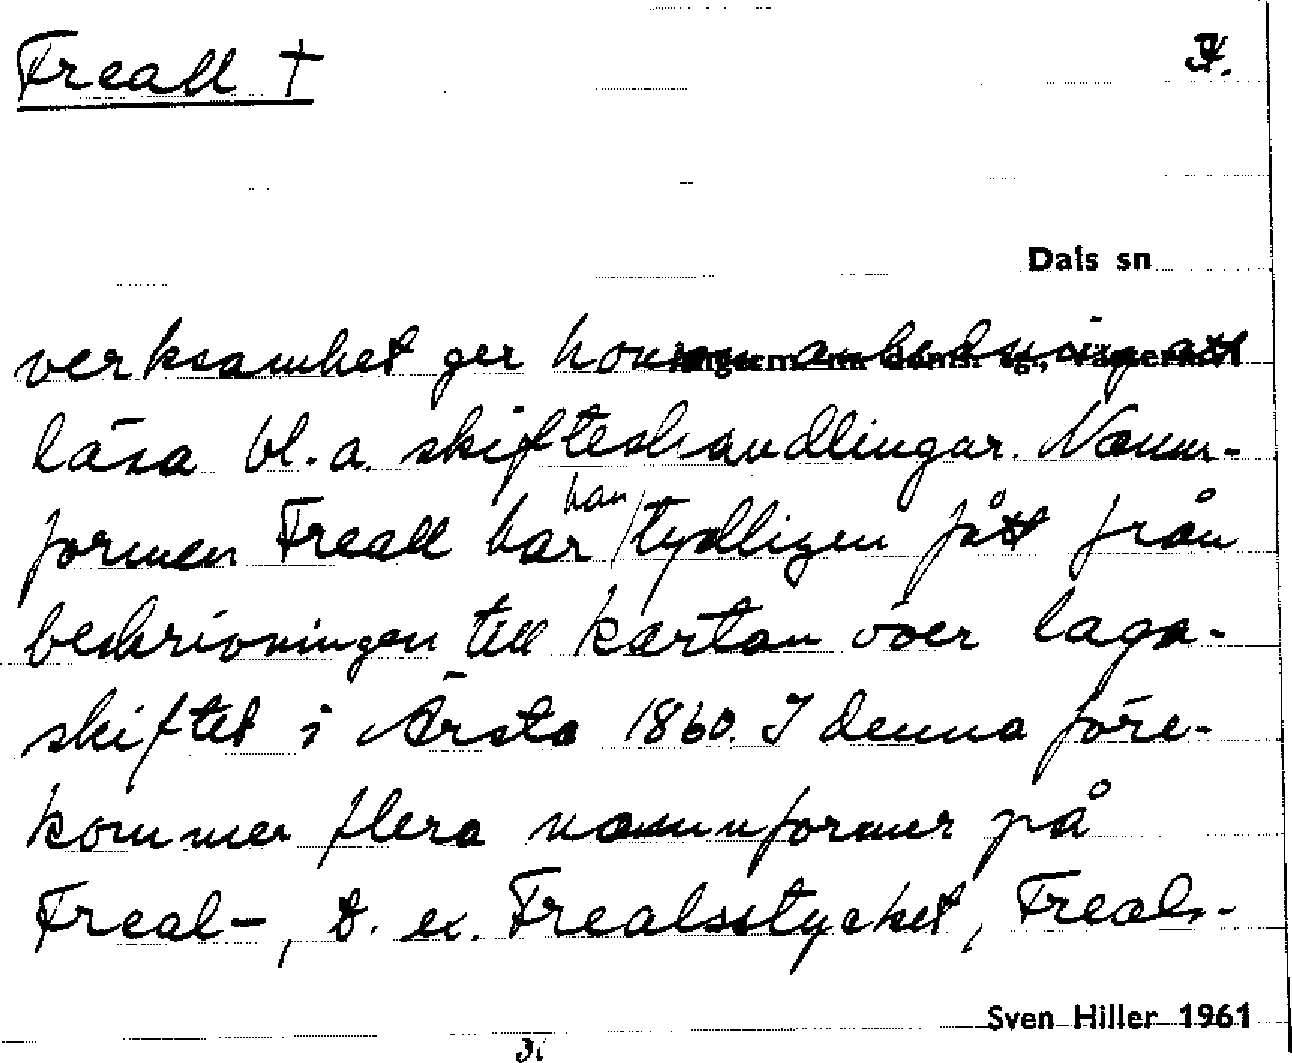 Freall †
Dals sn
verksamhet ger honom anledning att
läsa bl.a. skifteshandlingar. Namn-
formen Freall har han tydligen fått från
beskrivningen till kartan över laga-
skiftet i Ärsta 1860. I denna före-
kommer flera namnformer på
Freal-, t. ex. Frealsstycket, Freals-
Sven Hiller 1961